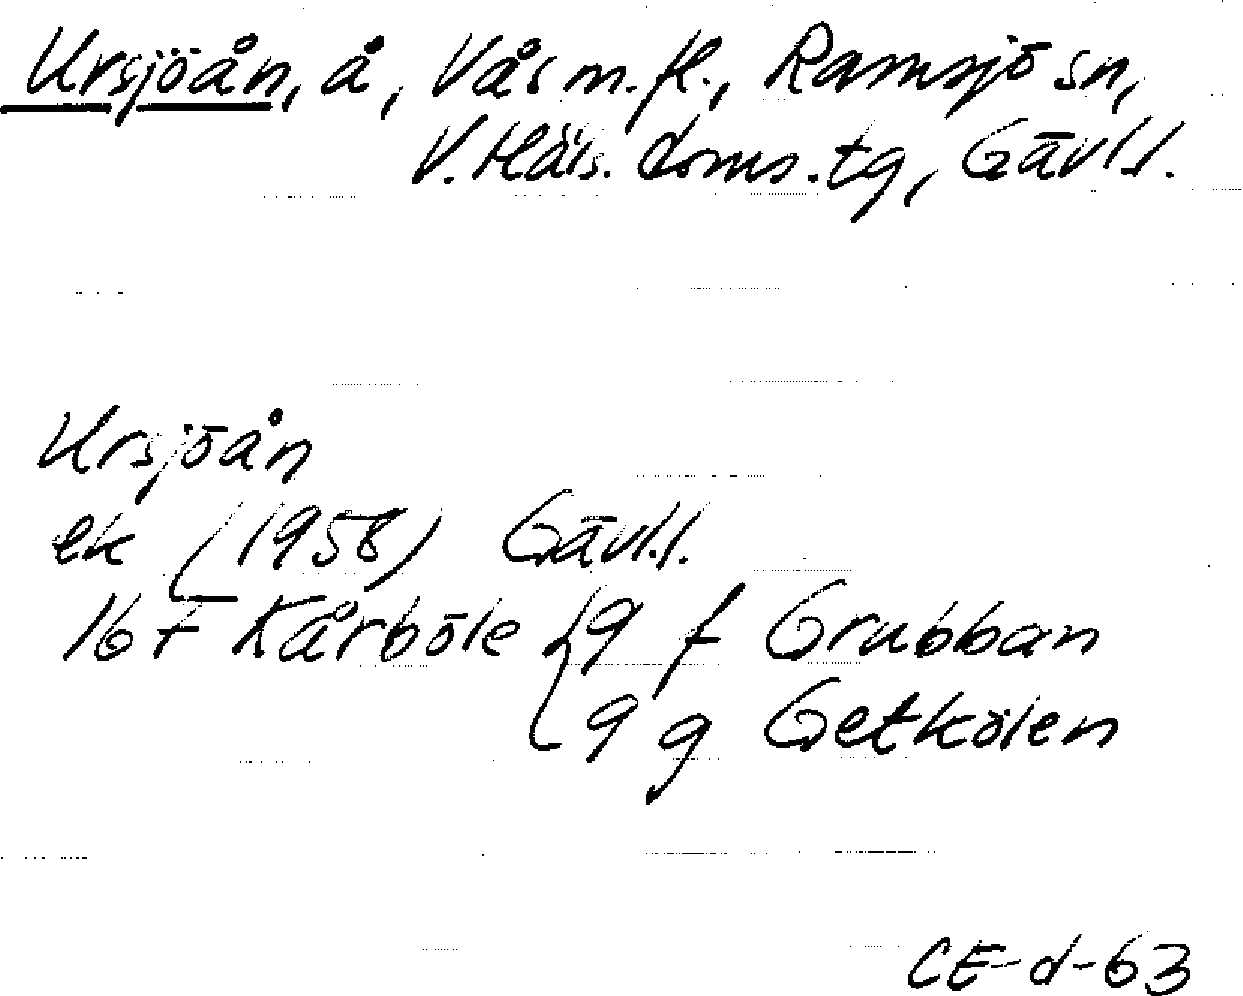 Ursjöån, å, Vås m. fl., Ramsjö sn,
V. Häls. doms. tg, Gävl.l.
Ursjöån
ek (1958) Gävl.l.
16 F Kårböle { 9 f Grubban
9 g Getkölen
CE-d-63